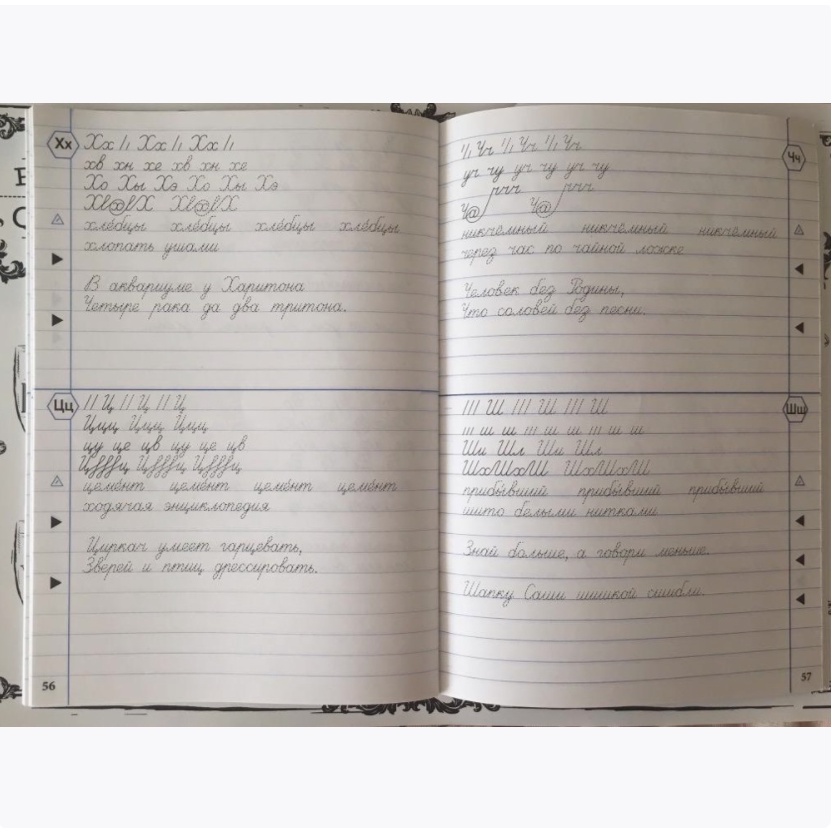 Хх
Хх Хх Хх
хв хн хе хв хн хе
Хо Хы Хэ Хо Хы Хэ
хле́бцы хле́бцы хле́бцы хле́бцы
хлопать ушами
В аквариуме у Харитона
Четыре рака да два тритона.
Цц
Ц Ц Ц
Цщ Цщ Цщ
цу це цв цу це цв
цеме́нт цеме́нт цеме́нт цеме́нт
ходячая энциклопедия
Циркач умеет гарцевать,
Зверей и птиц дрессировать.
56
Чч
Чч Чч Чч
уч чу уч чу уч чу
никчёмный никчёмный никчёмный
через час по чайной ложке
Человек без Родины,
Что соловей без песни.
Шш
Ш Ш Ш
ш ш ш ш ш ш ш
Ши Шл Ши Шл
ШхШхШ ШхШхШ
прибы́вший прибы́вший прибы́вший
шито белыми нитками
Знай больше, а говори меньше.
Шапку Саши шишкой сшибли.
57